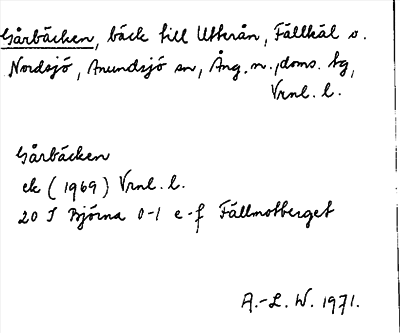 Gårbäcken, bäck till Utterån, Fällkäl o.
Nordsjö, Anundsjö sn, Ång. n., doms. tg,
Vrnl. l.
Gårbäcken
ek (1969) Vrnl. l.
20 I Björna 0-1 e-f Fällmotberget
A.-L. W. 1971.